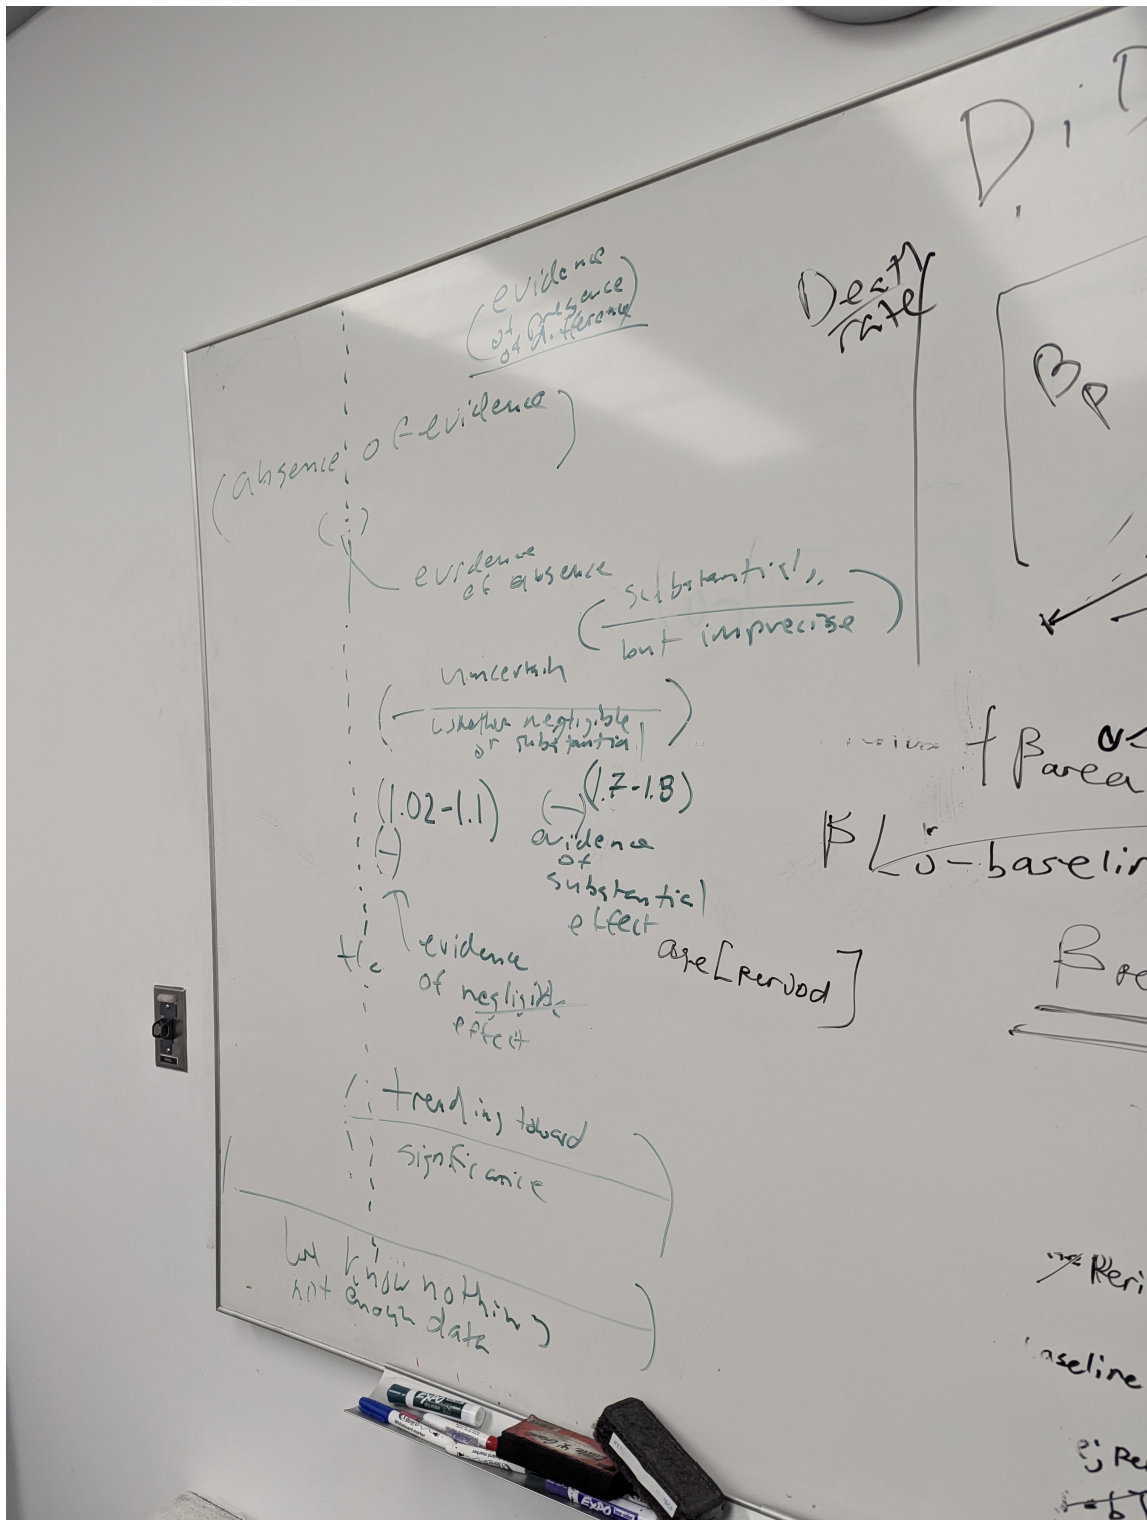 evidence
of presence
of difference
(absence of evidence)
( )
evidence
of absence
(substantial,
but imprecise)
(uncertain
whether negligible
or substantial)
(1.02-1.1)
(1.7-1.8)
(-)
(-)
evidence
of
substantial
effect
evidence
of negligible
effect
trending toward
significance
know nothing
not enough data
Death
rate
D
βp
+ βarea
-baselin
age[period]
Peri
aseline
EXPO
EXPO